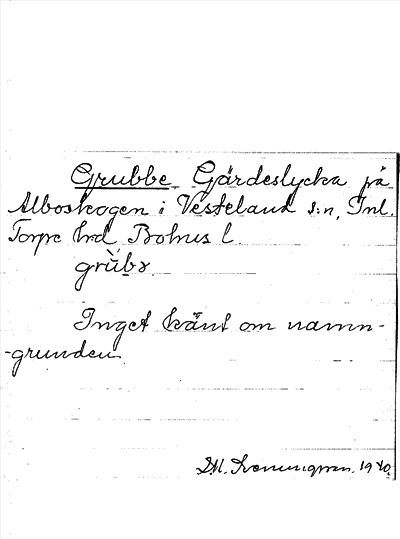 Grubbe Gärdeslycka på
Alboskogen i Vesteland s:n, Inl.
Torpe hrd Bohus l.
grùbɤ
Inget känt om namn-
-grunden
1940.